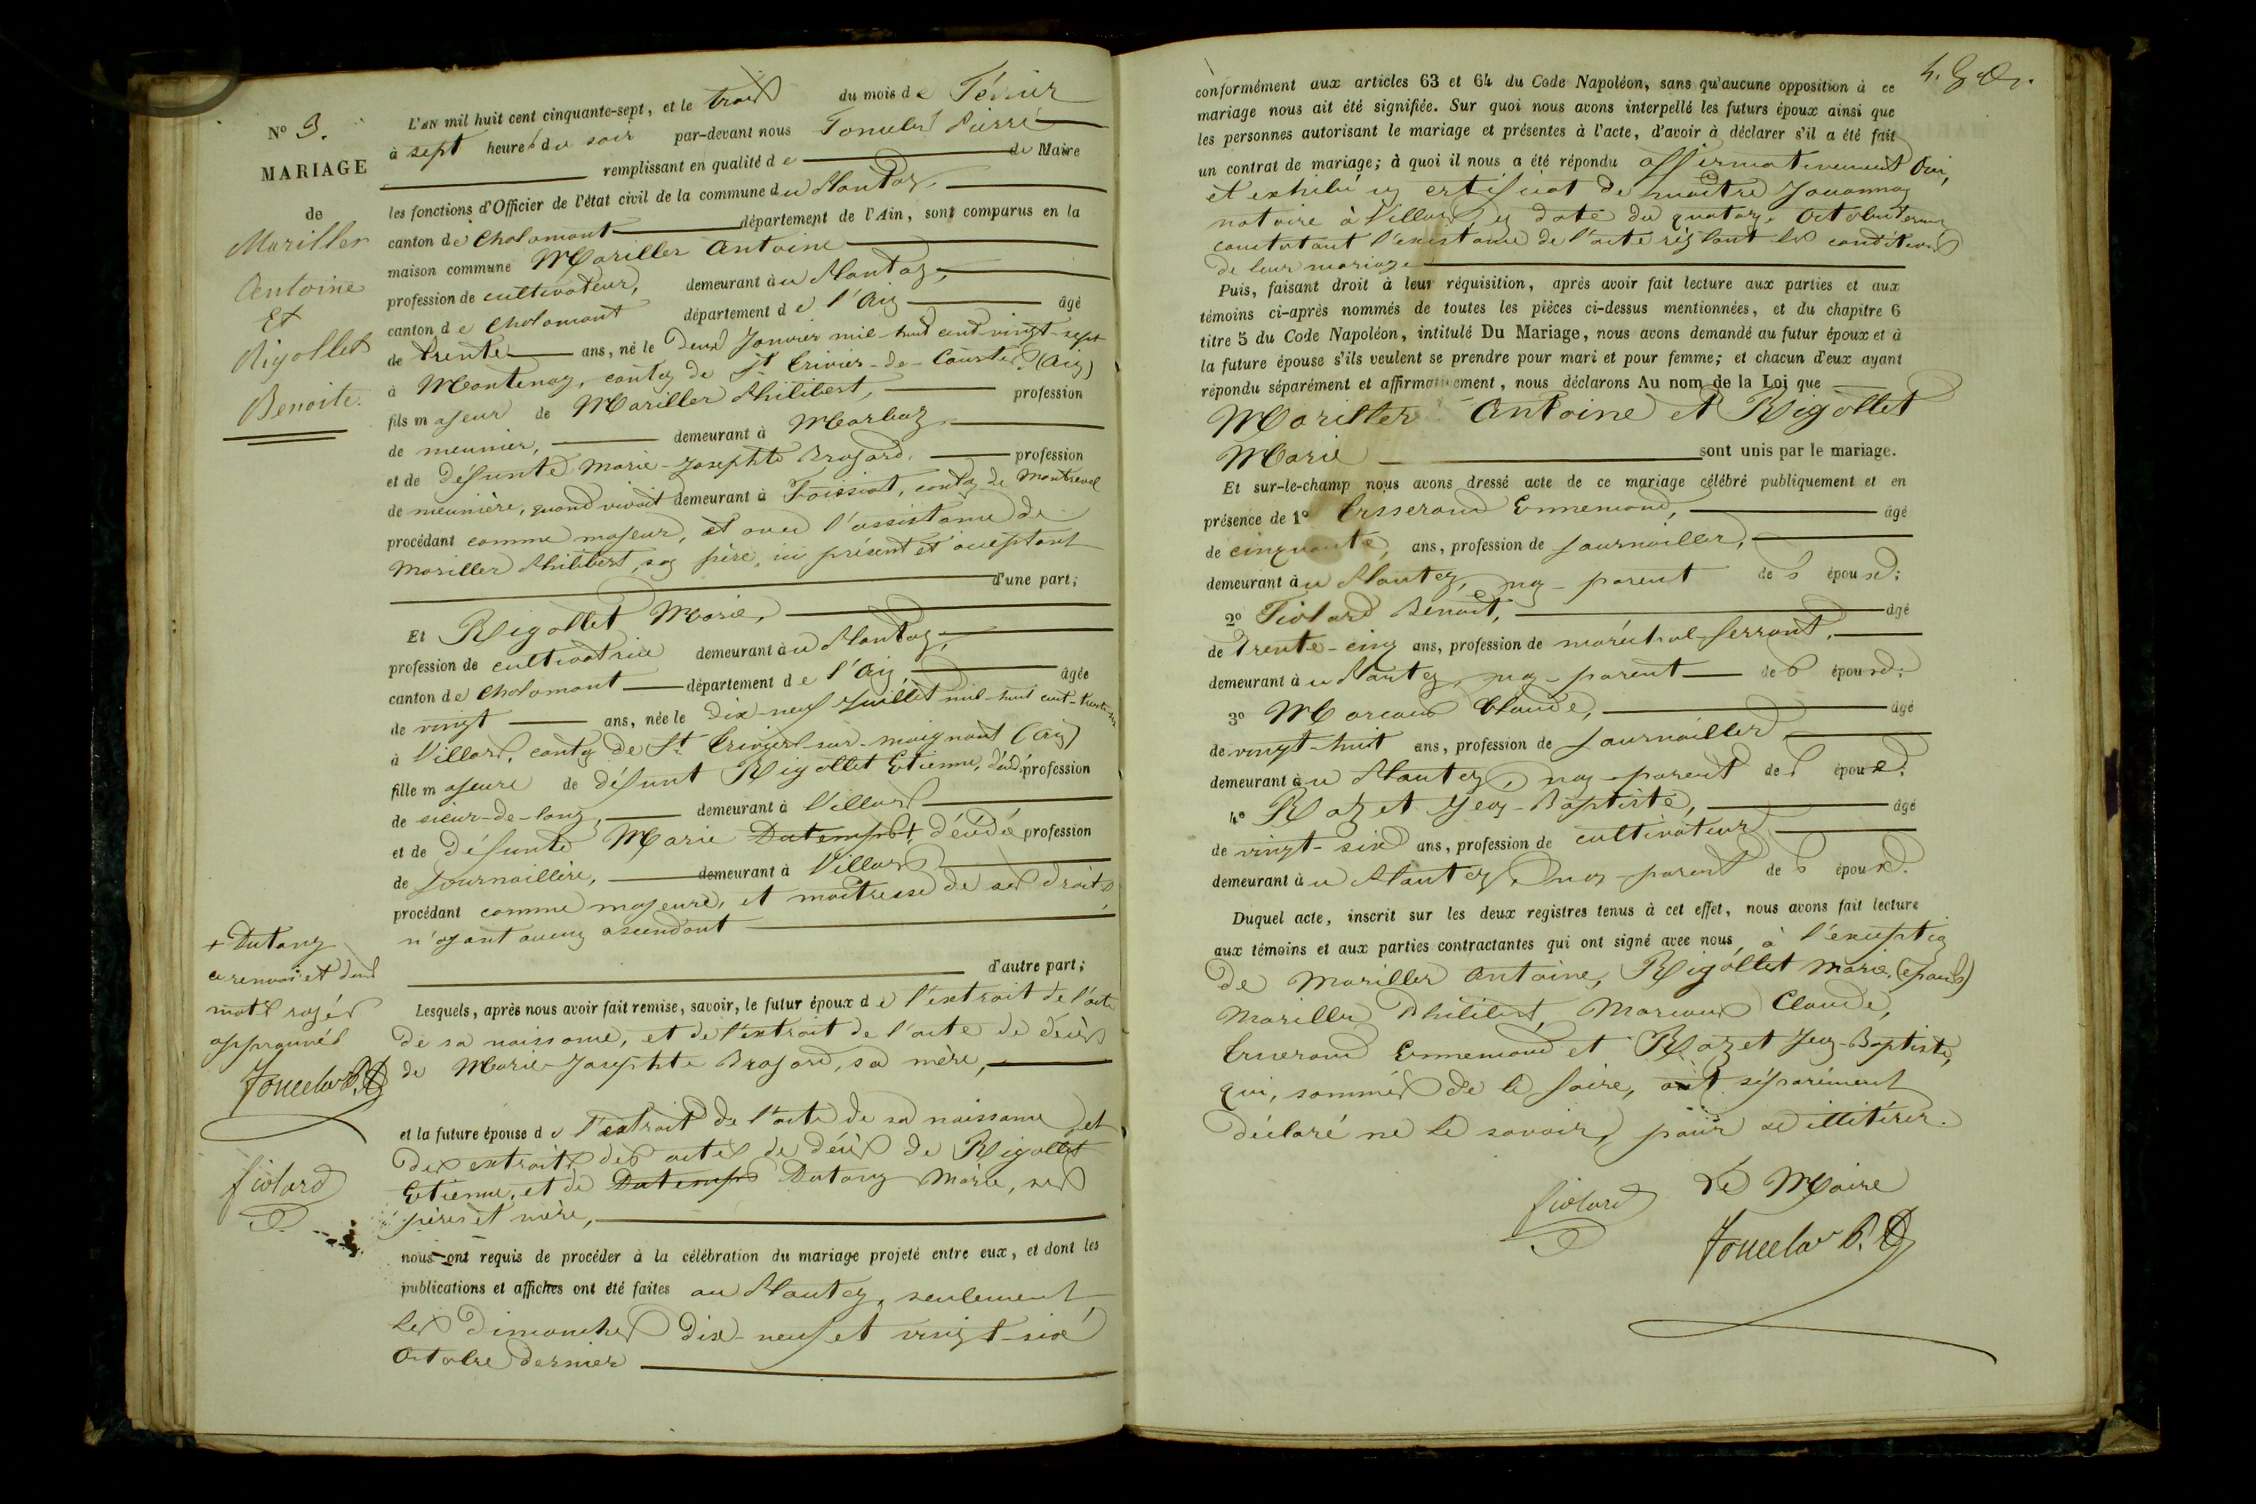 N° 3.
MARIAGE
de
Mariller
Antoine
Et
Rigollet
Benoite.
L'AN mil huit cent cinquante-sept, et le trois du mois de Février
à sept heures du soir par-devant nous Pierre
remplissant en qualité de de Maire
les fonctions d'Officier de l'état civil de la commune du Plantay,
canton de Chalamont département de l'Ain, sont comparus en la
maison commune Mariller Antoine
profession de cultivateur, demeurant au Plantay,
canton de Chalamont département de l'Ain âgé
de trente ans, né le deux Janvier mil-huit cent vingt-sept
à Mantenay, canton de St Trivier-de-Courtes (Ain)
fils majeur de Mariller Philibert, profession
de meunier, demeurant à Marboz
et de défunte Marie-Josephte Brasard, profession
de meunière, quand vivait demeurant à Foissiat, canton de Montrevel
procédant comme majeur, et avec l'assistance de
Mariller Philibert, son père, ici présent et acceptant
d'une part;
Et Rigollet Marie,
profession de cultivatrice demeurant au Plantay,
canton de Chalamont département de l'Ain, âgée
de vingt ans, née le dix-neuf Juillet mil-huit cent-trente-six
à Villars, canton de St Trivier-sur-moignans (Ain)
fille majeure de défunt Rigollet Etienne, décédé profession
de sieur-de-long, demeurant à Villars
et de défunte Marie Dutemps + décédée profession
de journalière, demeurant à Villars
procédant comme majeure, et maîtresse de ses droits,
n'ayant aucun ascendant
d'autre part;
+ Dutang
ce renvoi et deux
mots rayés
approuvés
fiolard
Lesquels, après nous avoir fait remise, savoir, le futur époux de l'extrait de l'acte
de sa naissance, et de l'extrait de l'acte de décès
de Marie-Josephte Brasard, sa mère,
et la future épouse de l'extrait de l'acte de sa naissance et
des extraits des actes de décès de Rigollet
Etienne, et de Dutemps Dutang Marie, ses
père et mère,
nous ont requis de procéder à la célébration du mariage projeté entre eux, et dont les
publications et affiches ont été faites au Plantay, seulement
les dimanches dix-neuf et vingt-six
Octobre dernier
conformément aux articles 63 et 64 du Code Napoléon, sans qu'aucune opposition à ce
mariage nous ait été signifiée. Sur quoi nous avons interpellé les futurs époux ainsi que
les personnes autorisant le mariage et présentes à l'acte, d'avoir à déclarer s'il a été fait
un contrat de mariage; à quoi il nous a été répondu affirmativement Oui,
et exhibé un certificat de maître Jouannon
notaire à Villars, en date du quatorze Octobre dernier
constatant l'existence de l'acte réglant les conditions
de leur mariage
Puis, faisant droit à leur réquisition, après avoir fait lecture aux parties et aux
témoins ci-après nommés de toutes les pièces ci-dessus mentionnées, et du chapitre 6
titre 5 du Code Napoléon, intitulé Du Mariage, nous avons demandé au futur époux et à
la future épouse s'ils veulent se prendre pour mari et pour femme; et chacun d'eux ayant
répondu séparément et affirmativement, nous déclarons Au nom de la Loi que
Mariller Antoine et Rigollet
Marie sont unis par le mariage.
Et sur-le-champ nous avons dressé acte de ce mariage célébré publiquement et en
présence de 1° Ennemond, âgé
de cinquante ans, profession de journalier,
demeurant au Plantay, non-parent des époux;
2° Fiolard Benoit, âgé
de trente-cinq ans, profession de maréchal-ferrant,
demeurant au Plantay, non-parent des époux;
3° Marceau Claude, âgé
de vingt-huit ans, profession de journalier
demeurant au Plantay, non-parent des époux;
4° Razet Jean-Baptiste, âgé
de vingt-six ans, profession de cultivateur
demeurant au Plantay, non-parent des époux.
Duquel acte, inscrit sur les deux registres tenus à cet effet, nous avons fait lecture
aux témoins et aux parties contractantes qui ont signé avec nous, à l'exception
de Mariller Antoine, Rigollet Marie, (époux)
Mariller Philibert, Marceau Claude,
Ennemond et Razet Jean-Baptiste,
qui, sommés de le faire, ont séparément
déclaré ne le savoir, pour être illitérés.
Le Maire
fiolard